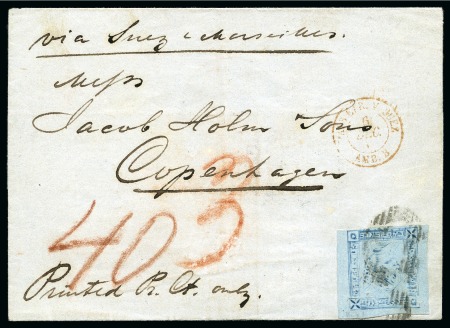 via Suez & Marseilles.
Messrs
Jacob Holm & Sons
Copenhagen
403
Printed P. Ct. only.
AMB.